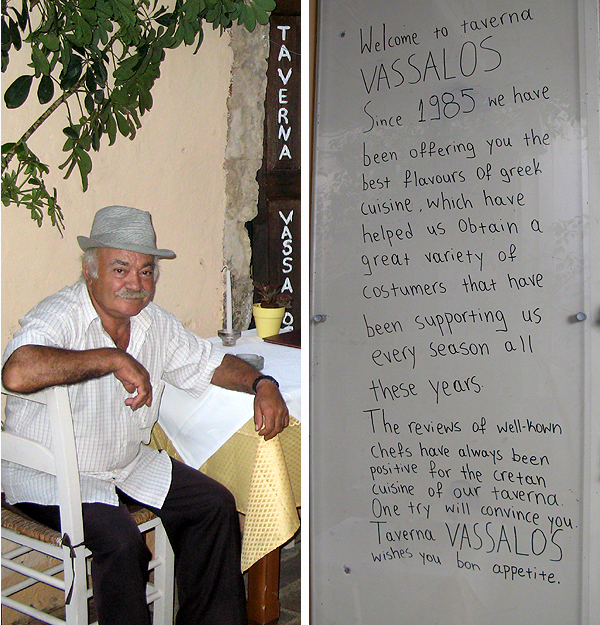 TAVERNA
VASSALOS
Welcome to taverna
VASSALOS
Since 1985 we have
been offering you the
best flavours of greek
cuisine, which have
helped us obtain a
great variety of
costumers that have
been supporting us
every season all
these years.
The reviews of well-kown
chefs have always been
positive for the cretan
cuisine of our taverna.
One try will convince you.
Taverna VASSALOS
wishes you bon appetite.